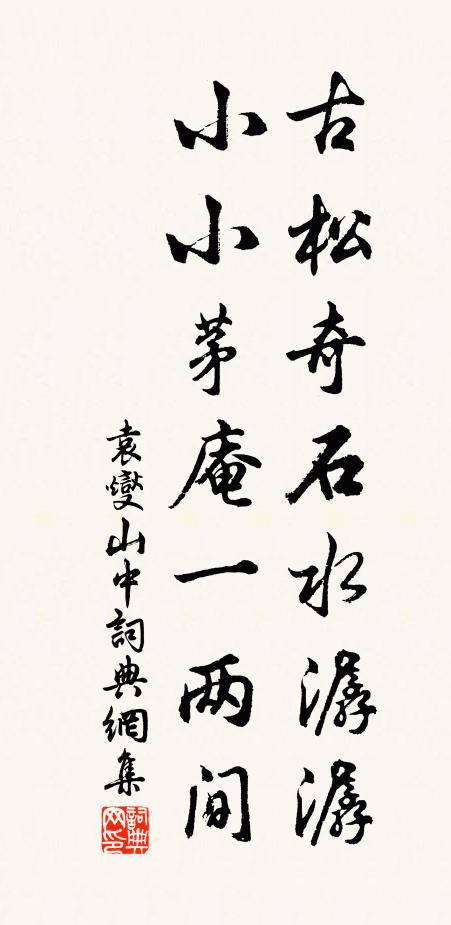 古松奇石水潺潺
小小茅庵一两间
袁燮山中詞典網集
詞典
网印